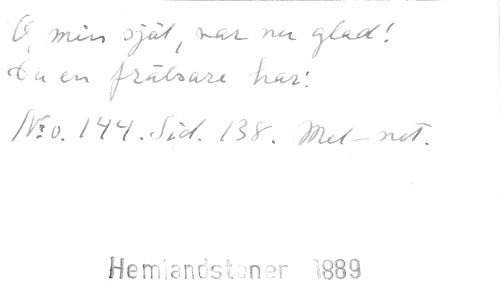 O, min själ, var nu glad!
Du en frälsare har!
No. 144. Sid. 138. Mel-not.
Hemlandstoner 1889